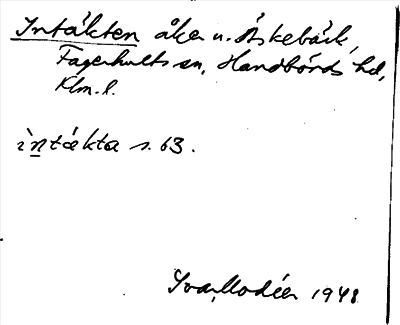 Intäkten åker u. Äskebäck,
Fagerhults sn, Handbörds hd,
Klm. l.
ìntäkta s. 63.
Ivar Modéer 1948